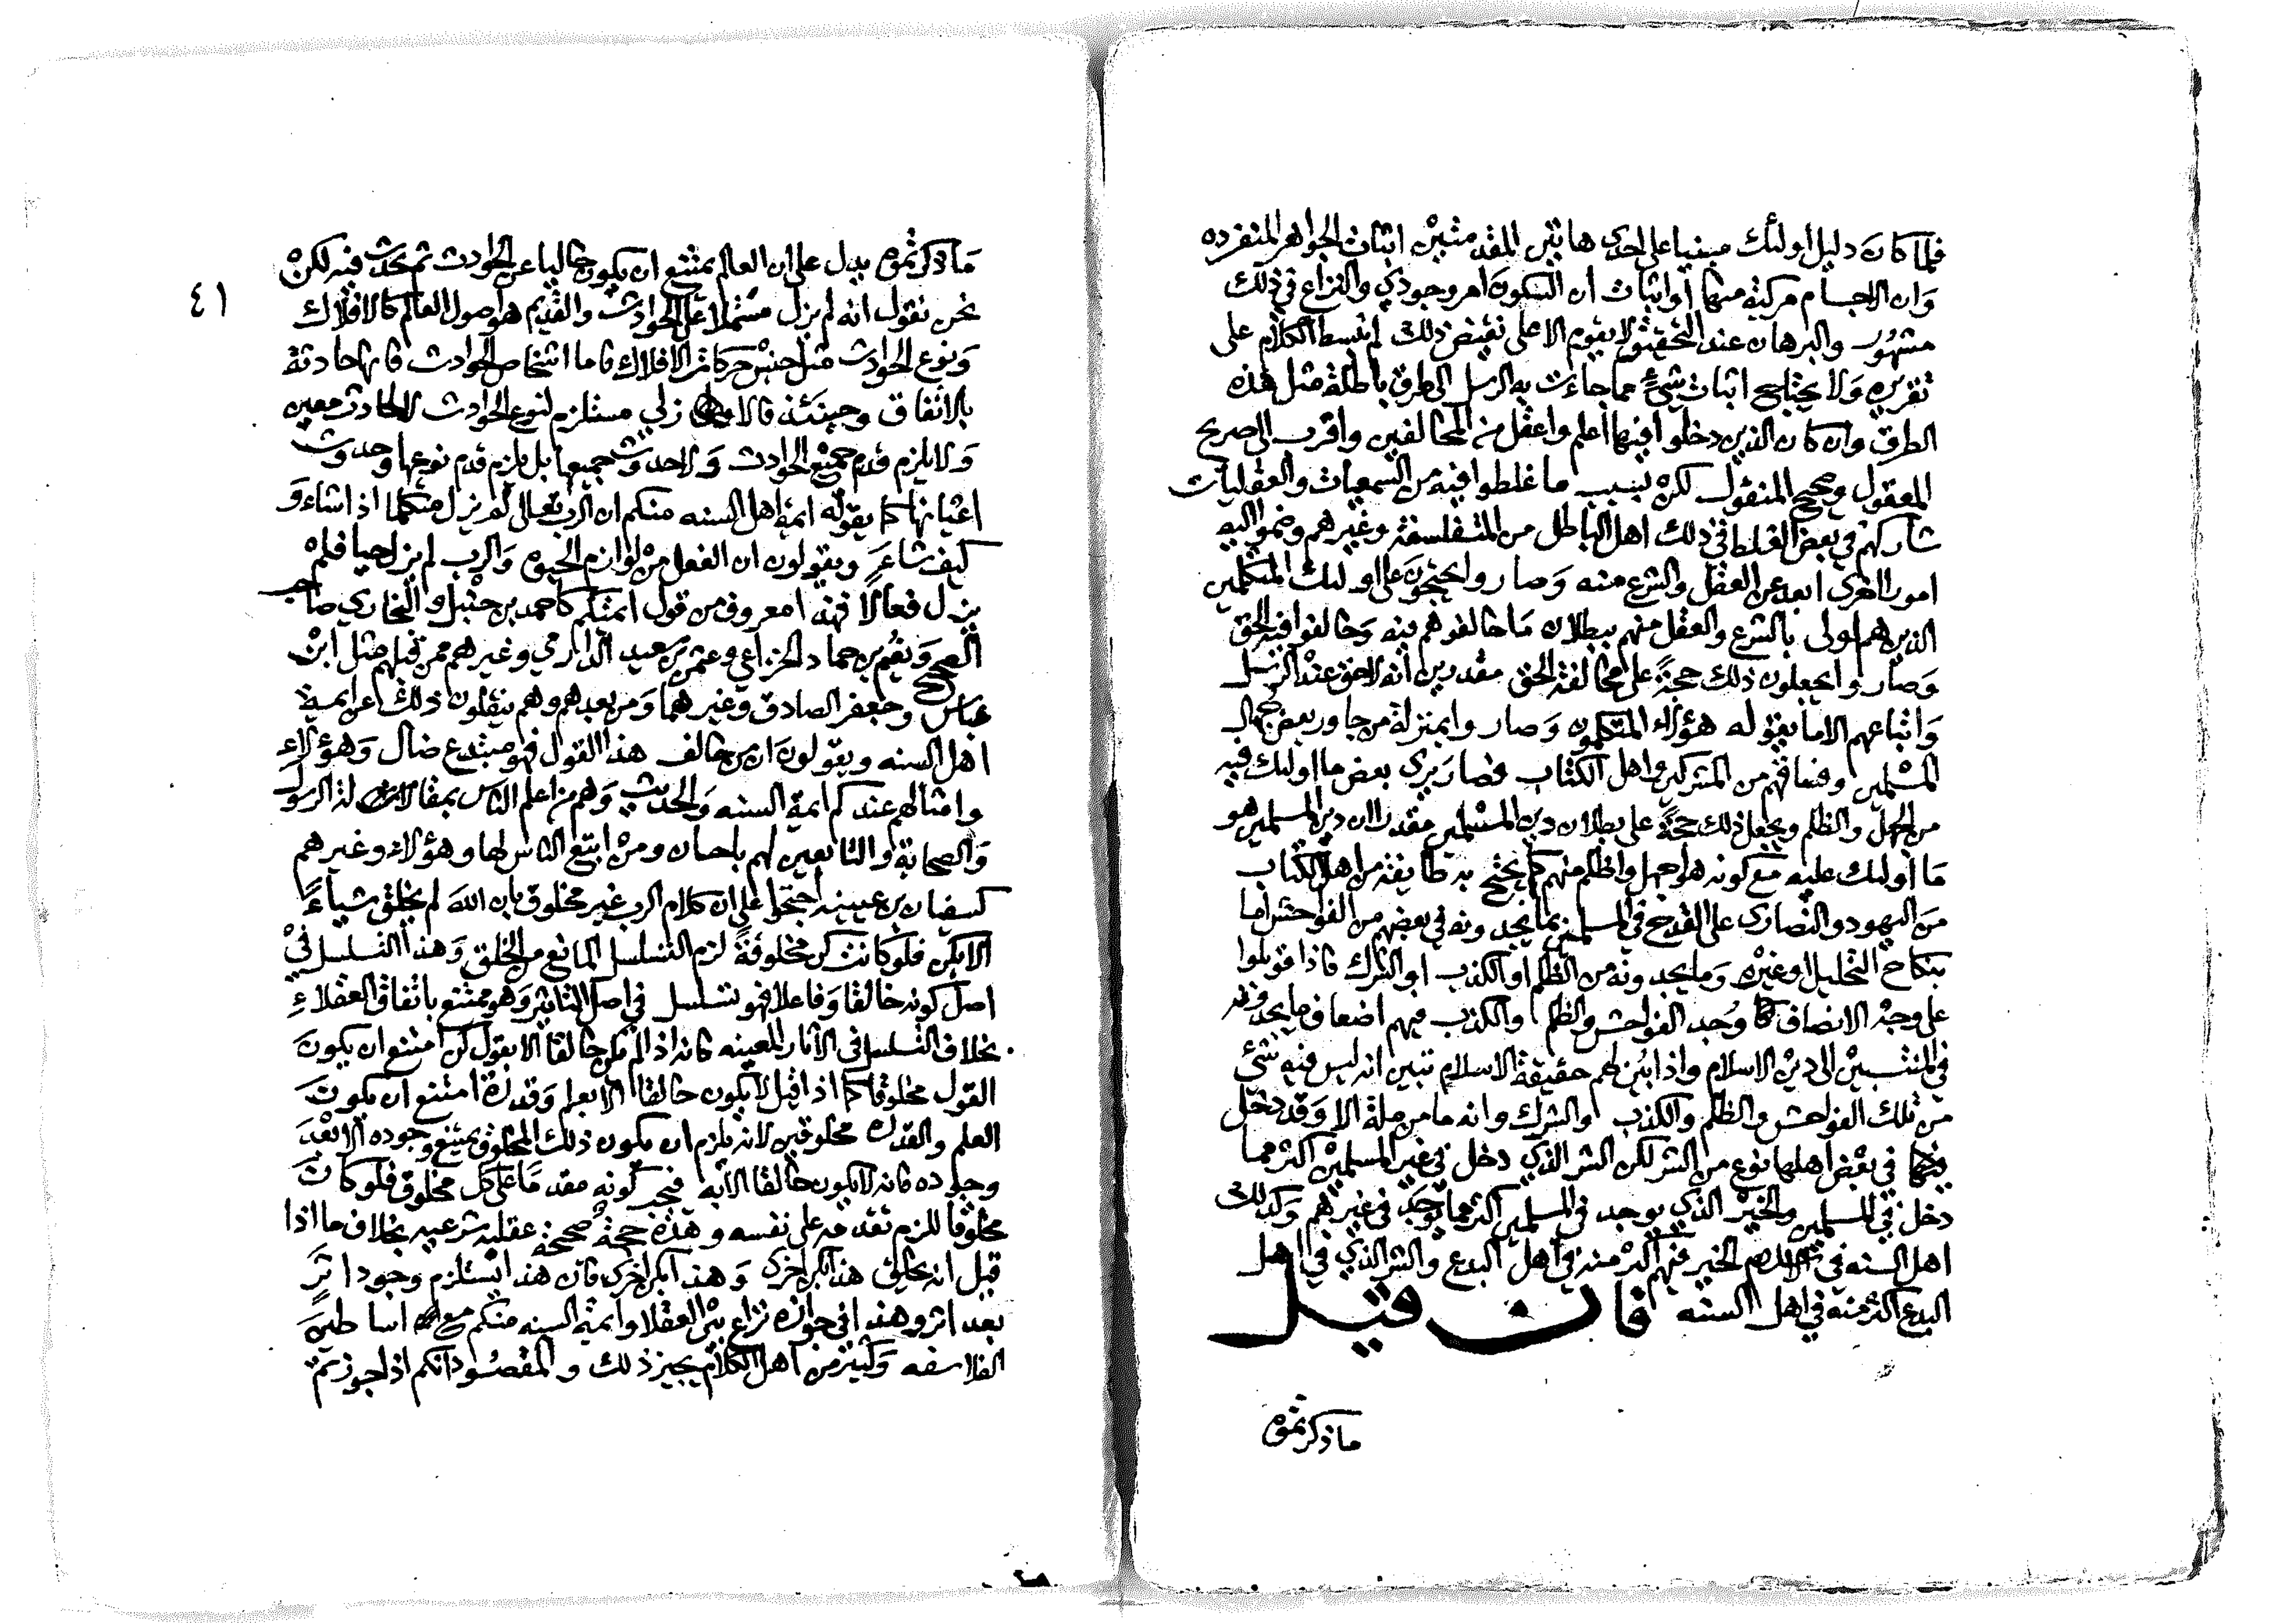 فلما كان دليل أولئك مبنيا على احدى هاتين المقدمتين اثبات الجواهر المنفرده
وان الاجسام مركبة منها أو اثبات أن السكون امر وجودي والنزاع في ذلك
مشهور والبرهان عند التحقيق لا يقوم الا على نقيض ذلك لم نبسط الكلام على
تقريره ولا يحتاج اثبات شيء مما جاءت به الرسل الى طرق باطلة مثل هذه
الطرق وان كان الذين دخلوا فيها أعلم واعقل من المخالفين واقرب الى صريح
المعقول وصحيح المنقول لكن بسبب ما غلطوا فيه من السمعيات والعقليات
شاركهم في بعض الغلط في ذلك اهل الباطل من المتفلسفة وغيرهم وضموا اليه
امورا اخرى ابعد عن العقل والشرع منه وصاروا يحتجون على اولئك المتكلمين
الذين هم اولى بالشرع والعقل منهم ببطلان ما خالفوهم فيه وخالفوا فيه الحق
وصاروا يجعلون ذلك حجة على مخالفة الحق مقدرين أنه لا حق عند الرسل
واتباعهم الا ما يقوله هؤلاء المتكلمون وصاروا بمنزلة من جاور بعض جهال
المسلمين وفساقهم من المشركين واهل الكتاب فصار يرى بعض ما اولئك فيه
من الجهل والظلم ويجعل ذلك حجة على بطلان دين المسلمين مقدرا ان دين المسلمين هو
ما أولئك عليه مع كونه هو اجهل واظلم منهم كما يحتج به طايفة من اهل الكتاب
من اليهود والنصارى على القدح في المسلمين بما يجدونه في بعضهم من الفواحش اما
بنكاح التحليل او غيره وما يجدونه من الظلم أو الكذب او الشرك فاذا قوبلوا
على وجه الانصاف وجد الفواحش والظلم والكذب فيهم اضعاف ما يجدونه
في المنتسبين الى دين الاسلام واذا بين لهم حقيقة الاسلام تبين انه ليس فيه شئ
من تلك الفواحش والظلم والكذب والشرك وانه ما من ملة الا وقد دخل
في بعض اهلها نوع من الشر لكن الشر الذي دخل في غير المسلمين اكثر مما
دخل في المسلمين والخير الذي يوجد في المسلمين اكثر مما يوجد في غيرهم وكذلك
اهل السنه في الخير فيهم اكثر منه في اهل البدع والشر الذي في اهل
البدع اكثر منه في اهل السنه فان قيل
ما ذكرتموه
٤١
ما ذكرتموه يدل على ان العالم يمتنع ان يكون خاليا عن الحوادث ثم تحدث فيه لكن
نحن نقول انه لم يزل مشتملا على الحوادث والقديم هو اصول العالم كالافلاك
ونوع الحوادث مثل جنس حركات الافلاك فاما اشخاص الحوادث فانها حادثة
بالاتفاق وحينئذ فالازلي مستلزم لنوع الحوادث لا لحادث معين
ولا يلزم قدم جميع الحوادث ولا حدوث جميعها بل يلزم قدم نوعها وحدوث
اعيانها كما يقوله ائمة اهل السنه منكم ان الرب تعالى لم يزل متكلما اذا شاء و
كيف شاء ويقولون ان الفعل من لوازم الحيوه والرب لم يزل حيا فلم
يزل فعالا فهذا معروف من قول ائمتكم كاحمد بن حنبل والبخاري صاحب
الصحيح ونعيم بن حماد الخزاعي وعثمن بن سعيد الدارمي وغيرهم ممن قبلهم مثل ابن
عباس وجعفر الصادق وغيرهما ومن بعدهم وهم ينقلون ذلك عن ائمة
اهل السنه ويقولون ان من خالف هذا القول فهو مبتدع ضال وهؤلاء
وامثالهم عندكم ائمة السنه والحديث وهم من اعلم الناس بمقالات الرسول
والصحابة والتابعين لهم باحسان ومن اتبع الناس لها وهؤلاء وغيرهم
كسفيان بن عيينه احتجوا على ان كلام الرب غير مخلوق بان الله لم يخلق شياء
الا بكن فلو كانت كن مخلوقة لزم التسلسل المانع من الخلق وهذا التسلسل في
اصل كونه خالقا وفاعلا فهو تسلسل في اصل التاثير وهو ممتنع باتفاق العقلاء
بخلاف التسلسل في الآثار المعينه فانه اذا لم يكن خالقا الا بقول كن امتنع ان يكون
القول مخلوقا كما اذا قيل لا يكون خالقا الا بعلم وقدرة امتنع ان يكون
العلم والقدرة مخلوقين لانه يلزم ان يكون ذلك المخلوق يمتنع وجوده الا بعد
وجوده فانه لا يكون خالقا الا به فيجب كونه مقدما على كل مخلوق فلو كان
مخلوقا للزم تقدمه على نفسه وهذه حجة صحيحة عقليه شرعيه بخلاف ما اذا
قيل انه يخلق هذا بكن اخرى وهذا بكن اخرى فان هذا يستلزم وجود اثر
بعد اثر وهذا في جوازه نزاع بين العقلا وائمة السنه منكم مع اساطين
الفلاسفه وكثير من اهل الكلام يجيز ذلك والمقصود انكم اذا جوزتم